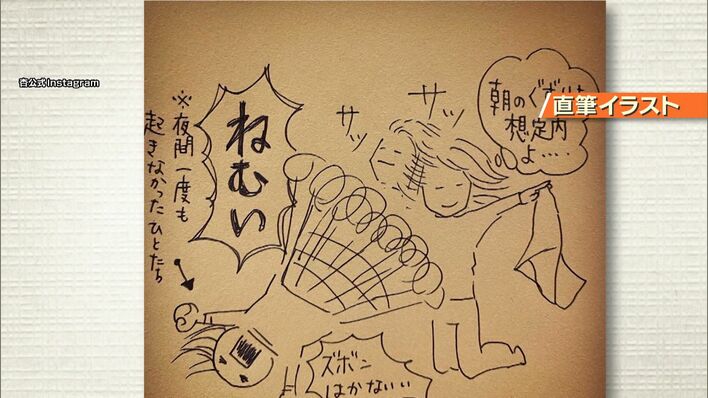 杏公式Instagram
直筆イラスト
朝のぐずりは
想定内
よ‥‥
サッ
サッ
ねむい
※夜間一度も
起きなかったひとたち
ズボン
はかないい